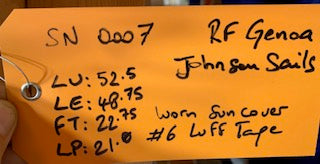 SN 0007
RF Genoa
Johnson Sails
LU: 52.5
LE: 48.75
FT: 22.75
LP: 21.0
Worn Sun cover
#6 Luff Tape